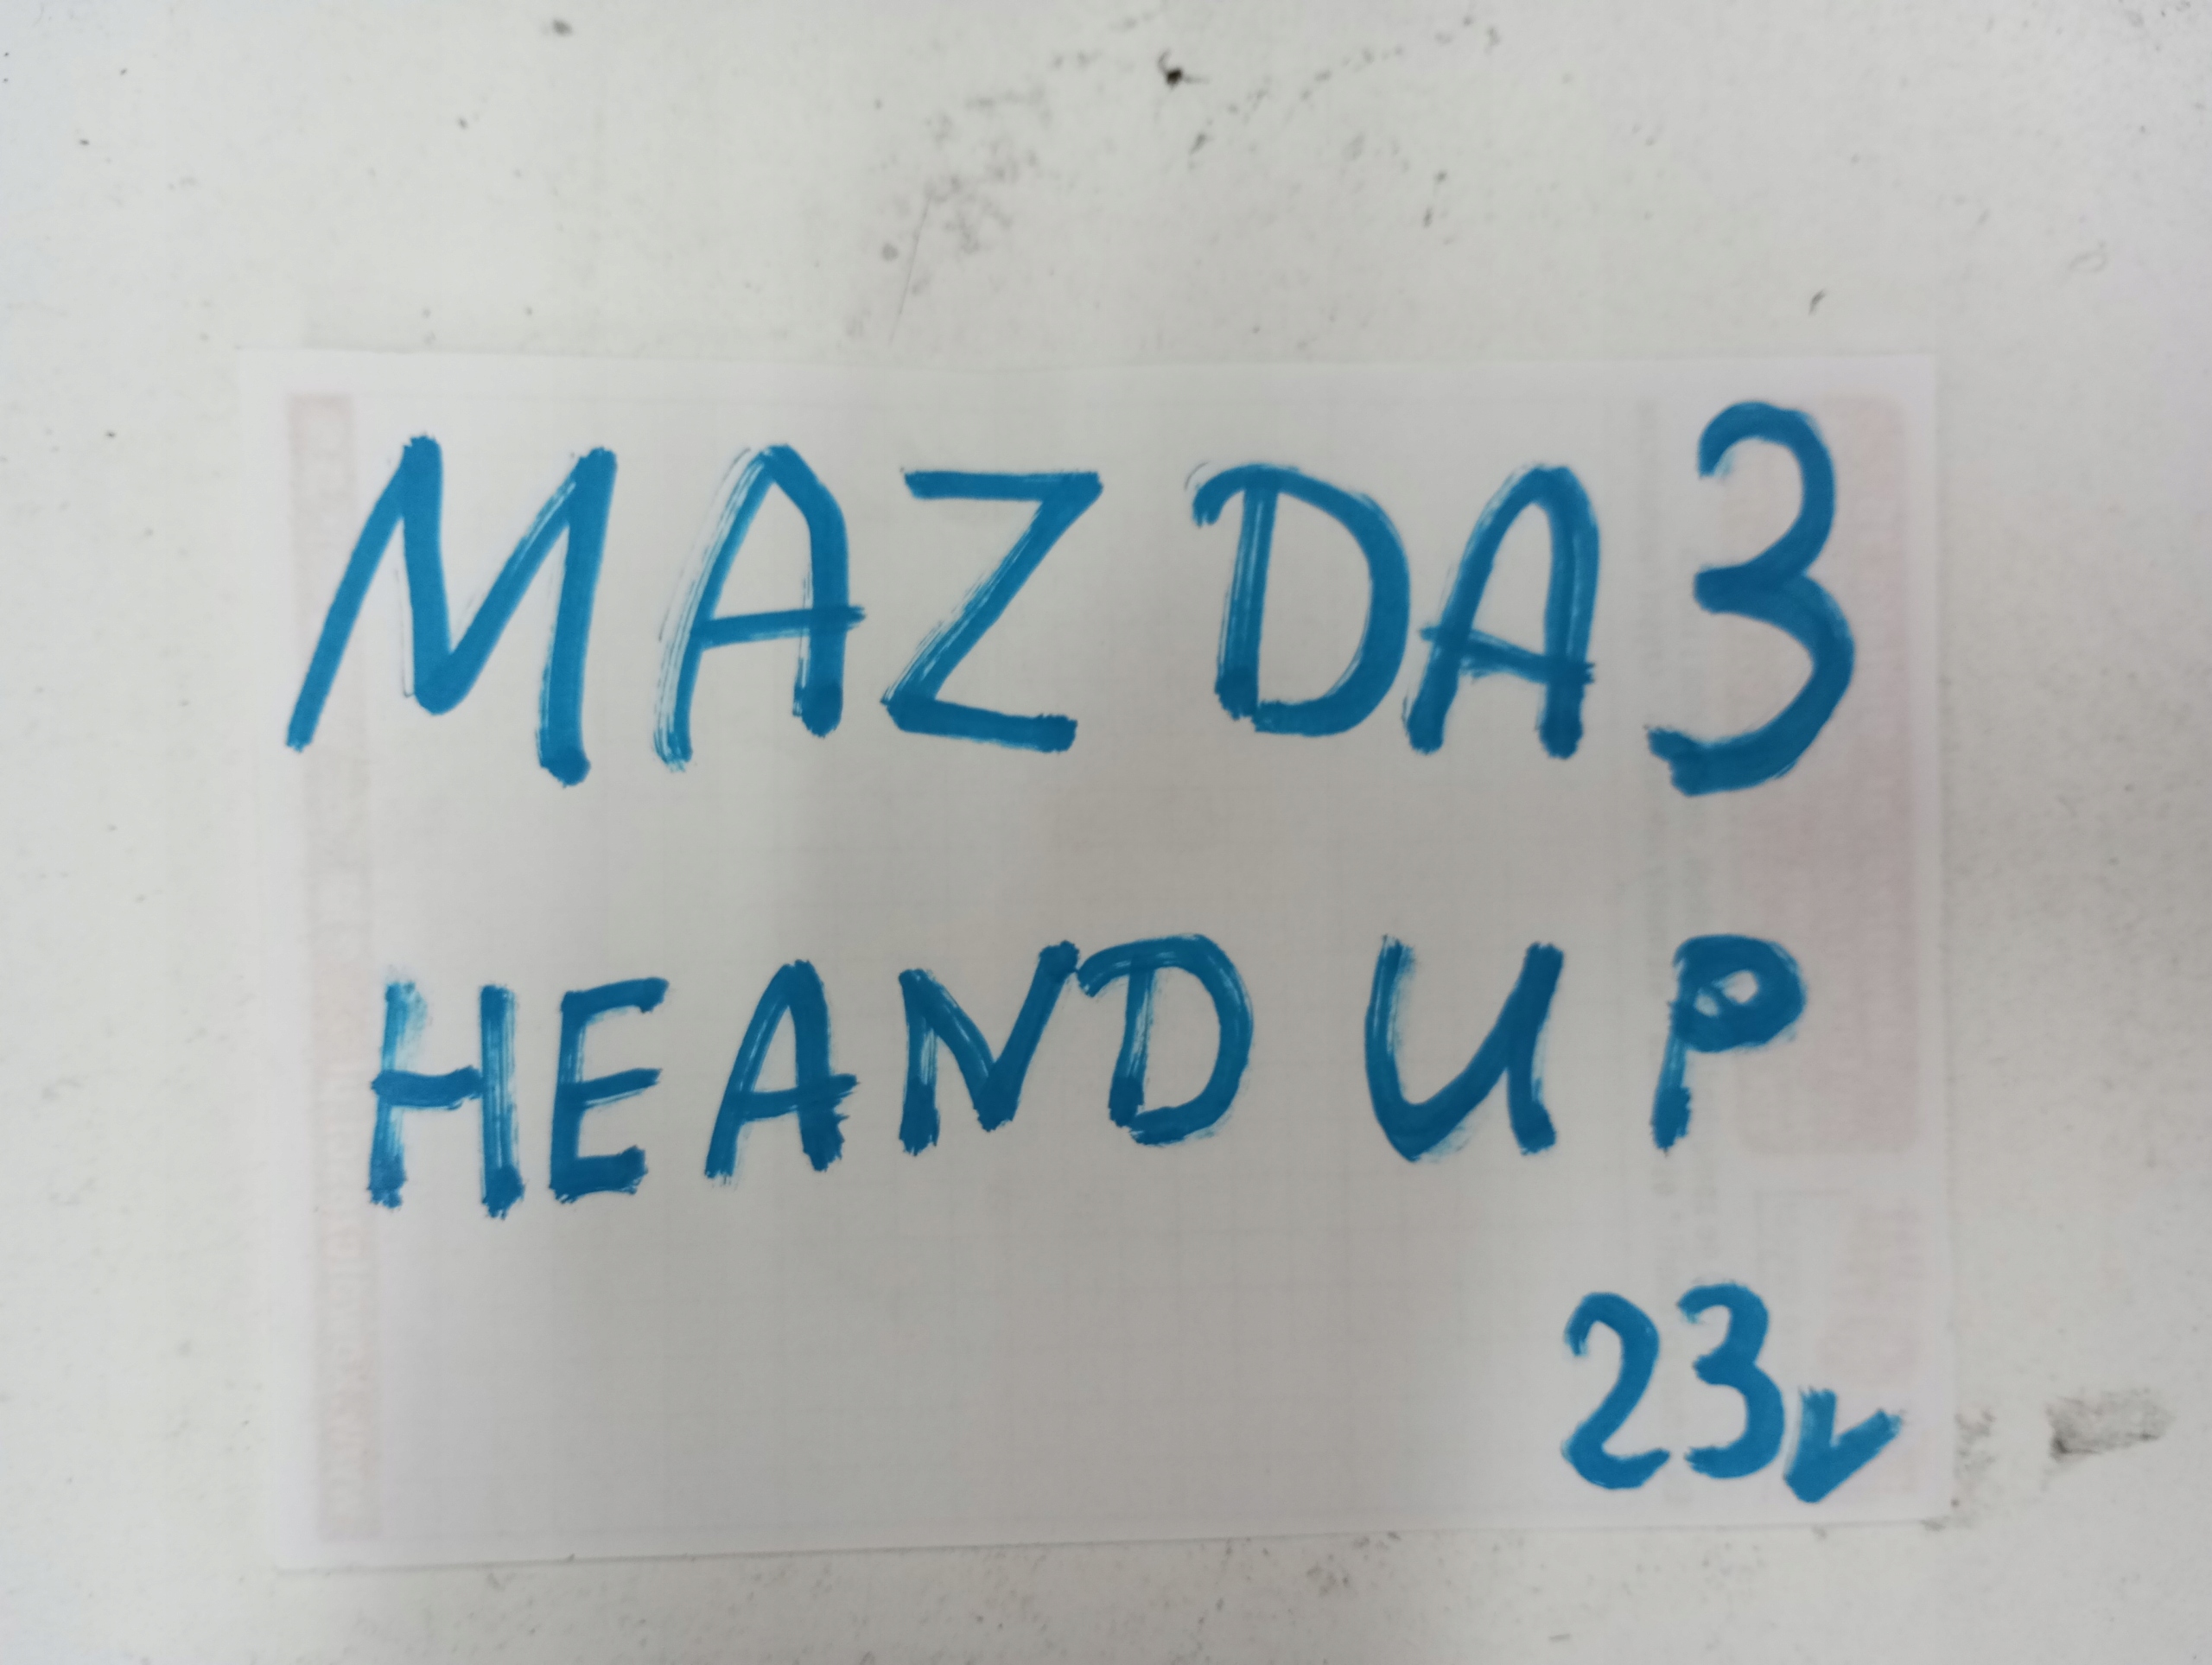 MAZDA3
HEAND UP
23v